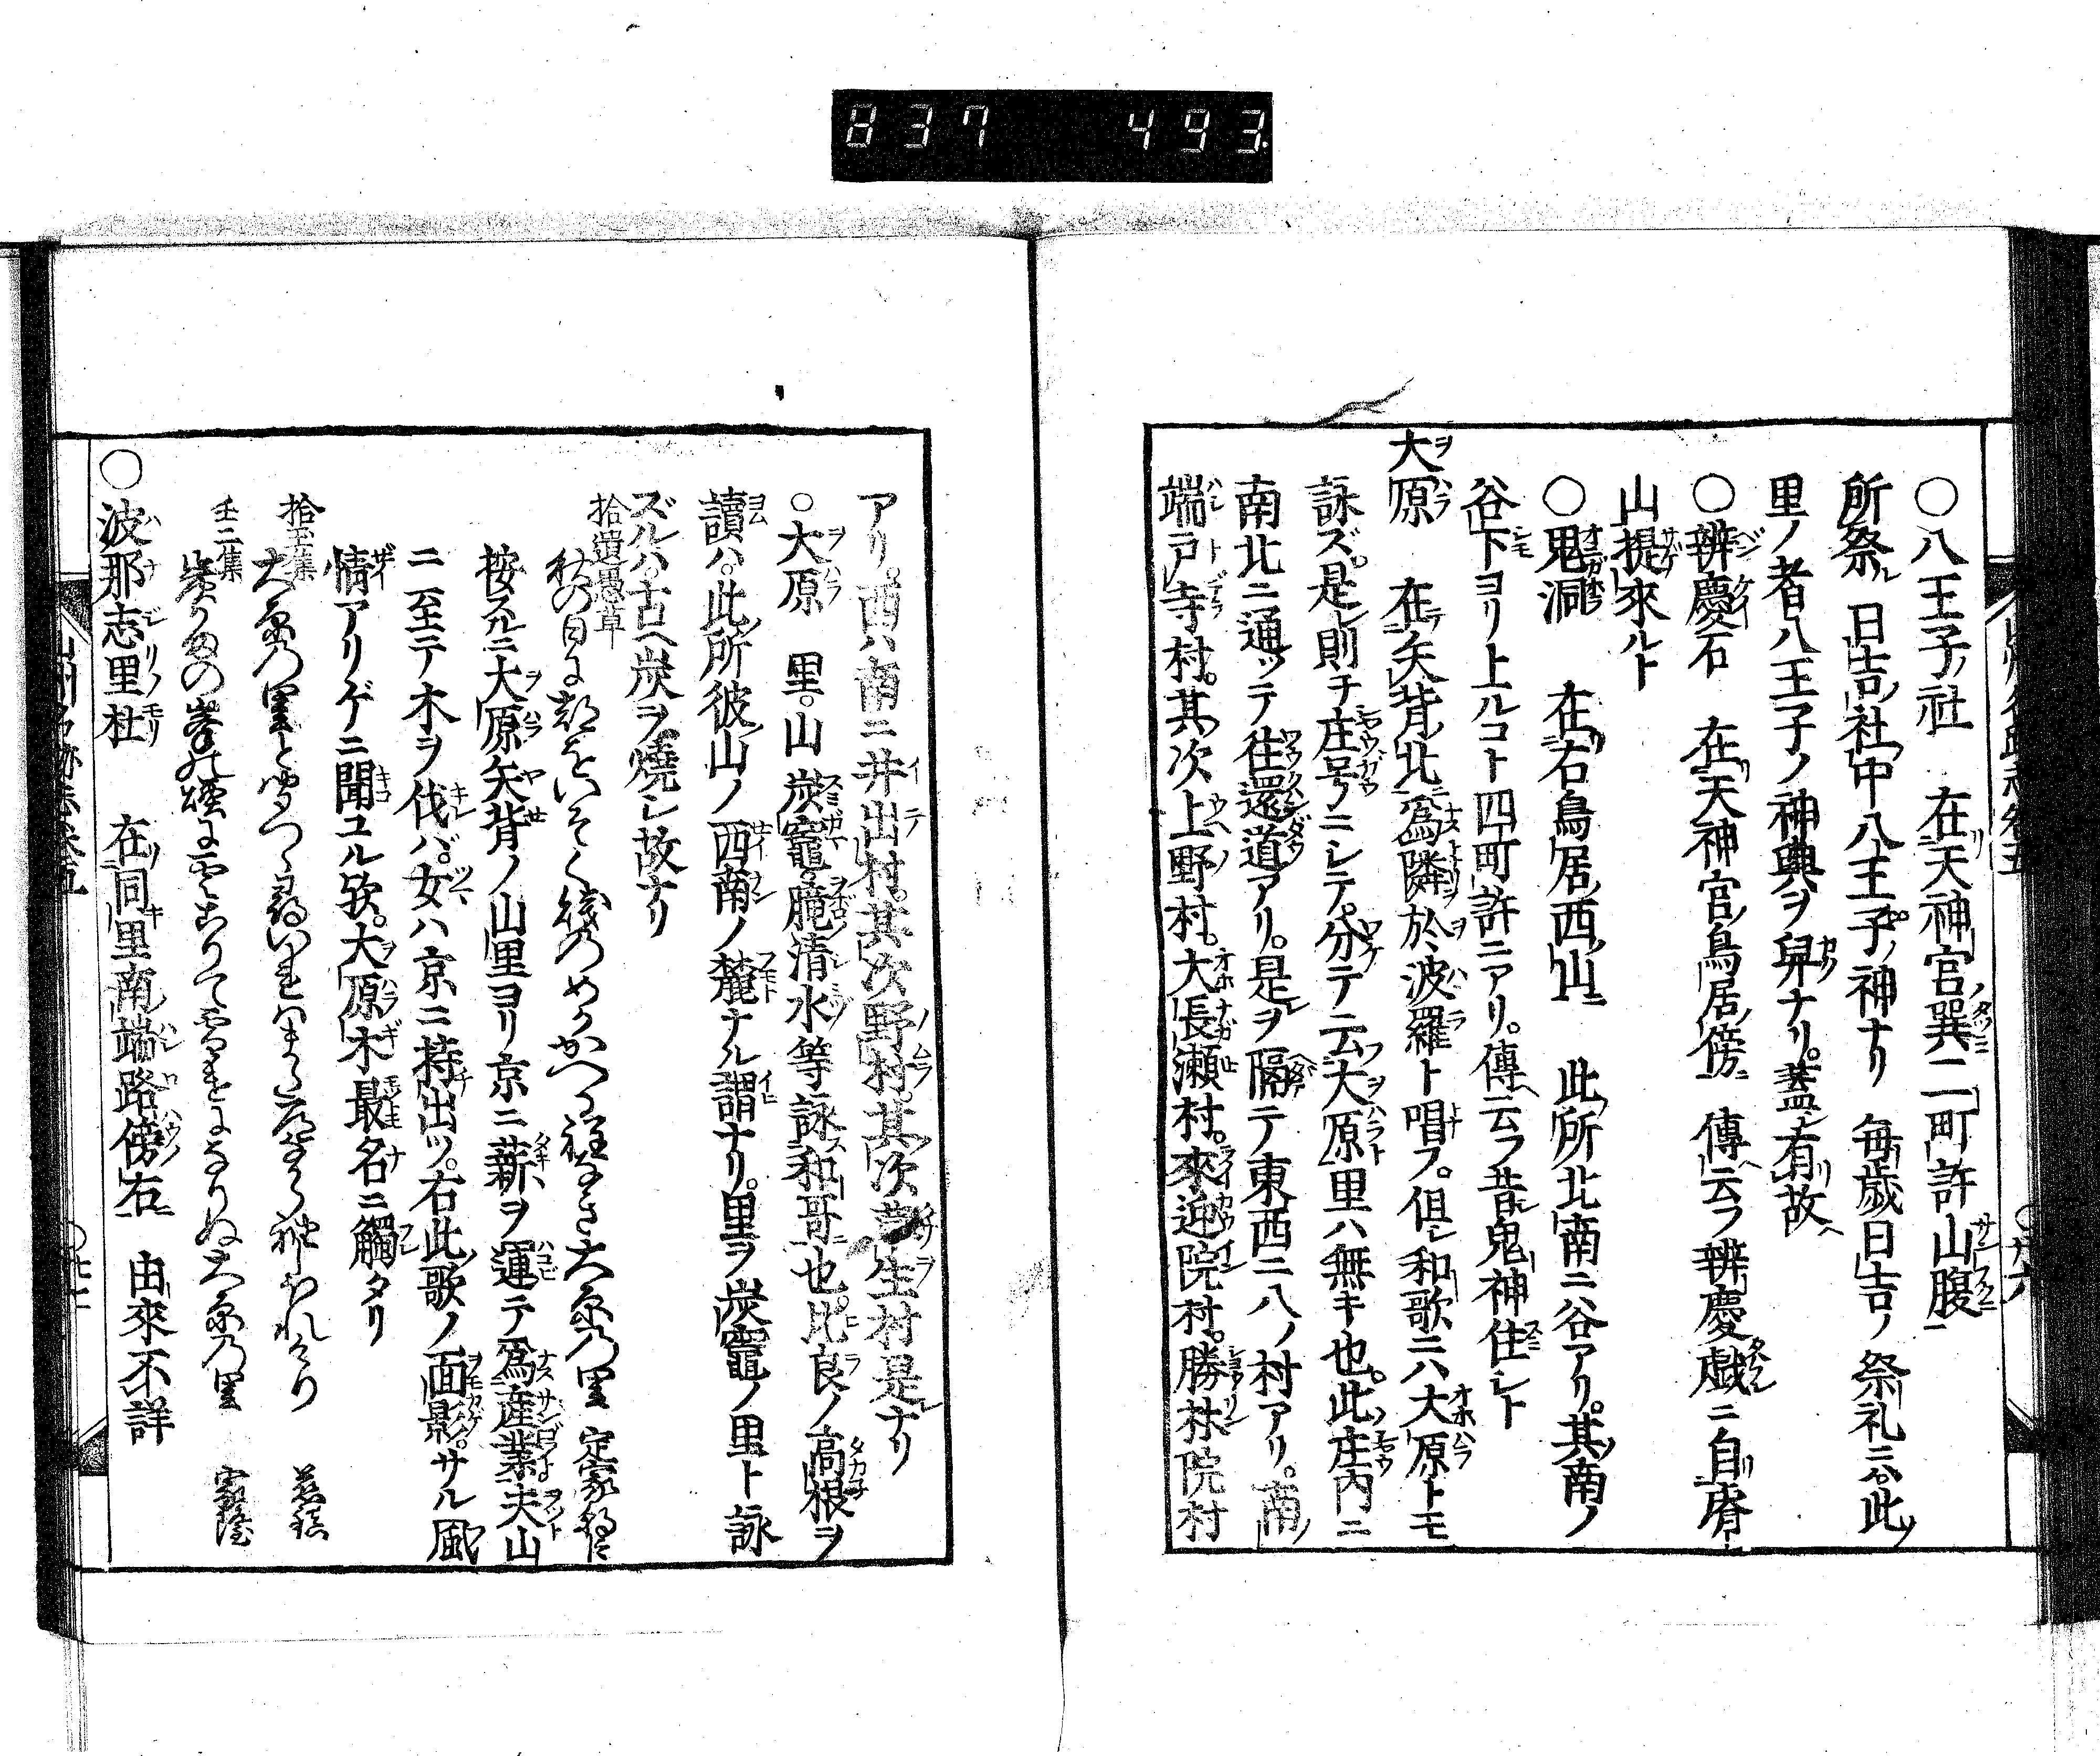 837 493
〇八王子ノ社 在天神宮巽二町許山腹ニ
所祭ル日吉ノ社中八王子ノ神ナリ 毎歳日吉ノ祭礼ニハ此ノ
里ノ者八王子ノ神輿ヲ舁ナリ。蓋シ有故ヘ
〇辨慶石 在天神宮ノ鳥居ノ傍ニ 傳云フ辨慶戯ニ自脊ノ
山提來ルト
〇鬼洞 在右鳥居ノ西ノ山ニ 此ノ所北南ニ谷アリ。其ノ南ノ
谷下ヨリ上ルコト四町許ニアリ。傳ヘ云フ昔シ鬼神住シト
大原 在矢背ノ北ニ爲隣於、波羅ト唱フ。但シ和歌ニハ大原トモ
詠ズ。是レ則チ庄号ノニシテ。分テ云フ大原里ハ無キ也。此ノ庄内ニ
南北ニ通ツテ往還道アリ。是レヲ隔テ東西ニ八ノ村アリ。南ノ
端戸寺村。其ノ次上野村。大長瀬村。來迎院村。勝林院村
アリ。西ハ南ニ井出村。其ノ次野村。其ノ次草生村是レナリ
〇大原 里。山 炭竈。朧清水等詠ス和哥ニ也。比良ノ高根ヲ
讀ハ。此ノ所彼ノ山ノ西南ノ麓ナル謂ナリ。里ヲ炭竈ノ里ト詠
ズルハ。古ヘ炭ヲ燒シ故ナリ
拾遺愚草
秋の日に都をいそく賤のめかかへる程なき大原乃里 定家
按スルニ大原矢背ノ山里ヨリ京ニ薪ヲ運テ爲産業夫山
ニ至テ木ヲ伐バ。女ハ京ニ持出ツ。右此ノ歌ノ面影。サル風
情アリゲニ聞ユル歟。大原木最名ニ觸タリ
拾玉集
大原乃里 慈鎮
壬二集
炭かまの峯の煙に雲こりて雪けになりぬ大原乃里 家隆
〇波那志里杜 在同里南ノ端路傍ノ右ニ 由來不詳